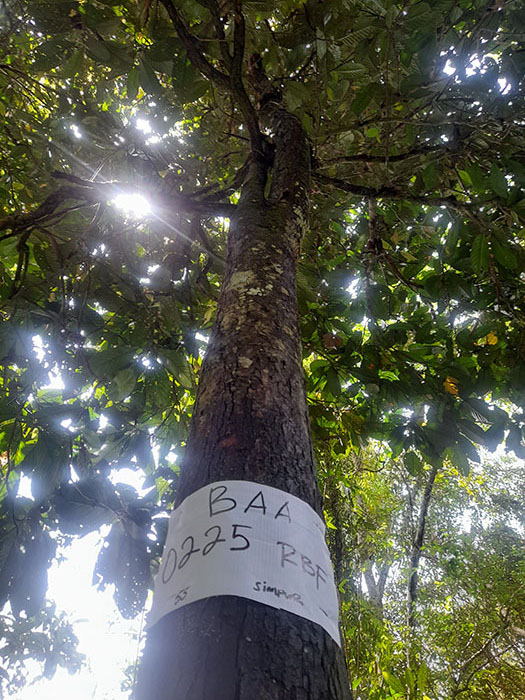 BAA
0225 RBF
55 simpur